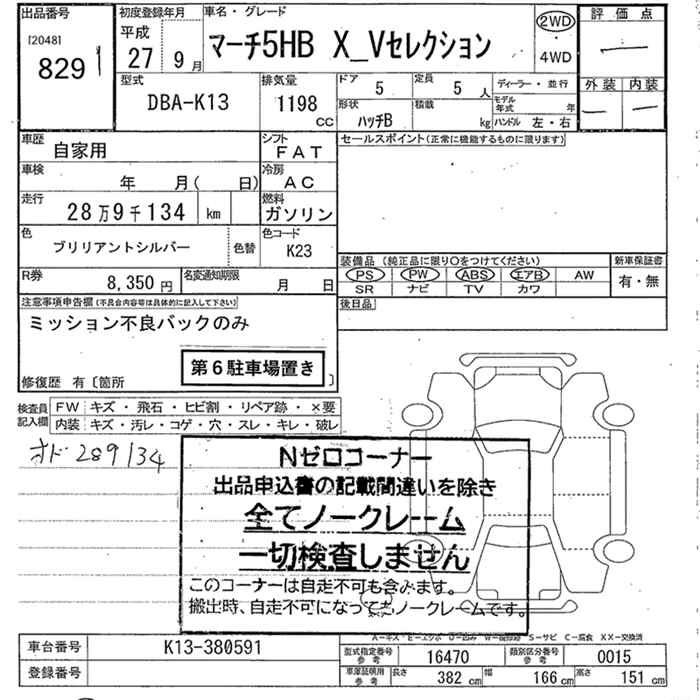 出品番号 初度登録年月 車名・グレード 2WD 評価点
[2048] 平成
829 27 9月 マーチ5HB X_Vセレクション 4WD
型式 排気量 ドア 定員 ディーラー・並行 外装 内装
DBA-K13 1198 CC 5 5人 モデル年式 年
形状 積載 ハンドル 左・右
ハッチB kg
車歴 自家用 シフト FAT セールスポイント(正常に機能するものに限ります)
車検 年 月( 日) 冷房 AC
走行 28万9千134 km 燃料 ガソリン
色 ブリリアントシルバー 色替 色コード K23
装備品(純正品に限り○をつけてください) 新車保証書
R券 8,350円 名変通知期限 月 日 PS PW ABS エアB AW 有・無
SR ナビ TV カワ
注意事項申告欄(不具合内容等は具体的に記入して下さい) 後日品
ミッション不良バックのみ
第6駐車場置き
修復歴 有〔箇所 〕
検査員記入欄 FW キズ・飛石・ヒビ割・リペア跡・×要
内装 キズ・汚レ・コゲ・穴・スレ・キレ・破レ
オド 289134
Nゼロコーナー
出品申込書の記載間違いを除き
全てノークレーム
一切検査しません
このコーナーは自走不可も含みます。
搬出時、自走不可になってもノークレームです。
S-サビ C-腐食 XX-交換済
車台番号 K13-380591 型式指定番号 参考 16470 類別区分番号 参考 0015
登録番号 車庫証明用 参考 長さ 382 cm 幅 166 cm 高さ 151 cm